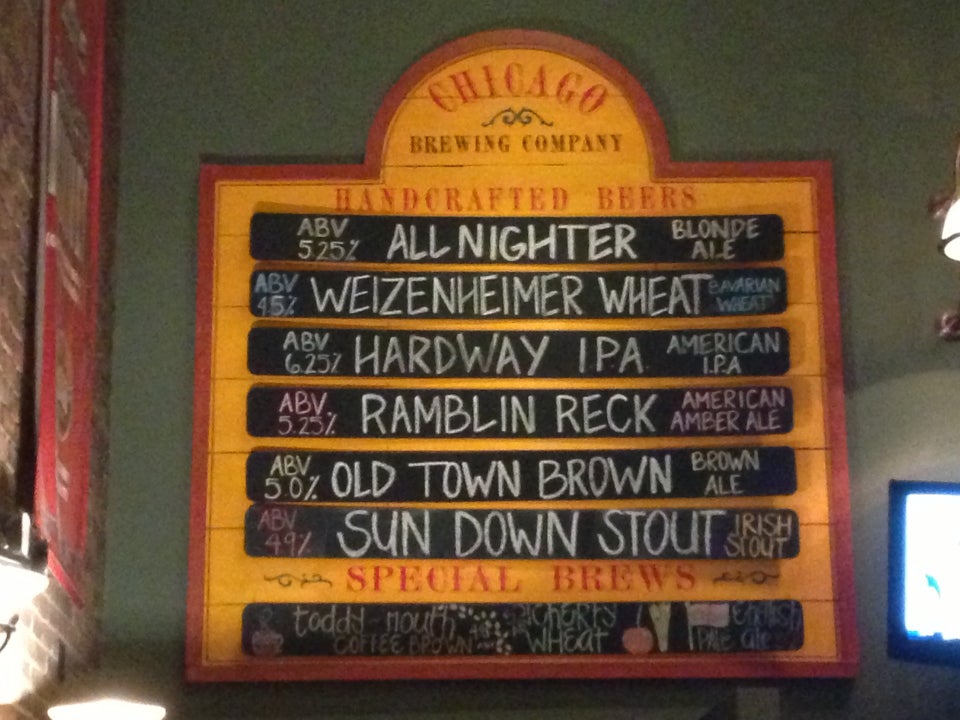 CHICAGO
BREWING COMPANY
HANDCRAFTED BEERS
ABV 5.25% ALL NIGHTER BLONDE ALE
ABV 4.5% WEIZENHEIMER WHEAT BAVARIAN WHEAT
ABV 6.25% HARDWAY I.P.A. AMERICAN I.P.A
ABV. 5.25% RAMBLIN RECK AMERICAN AMBER ALE
ABV. 5.0% OLD TOWN BROWN BROWN ALE
ABV 4.9% SUN DOWN STOUT IRISH STOUT
SPECIAL BREWS
toddy mouth CHERRY English
COFFEE BROWN WHEAT PALE ale